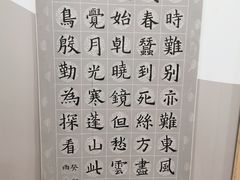 時難别亦難東風
春蠶到死絲方盡
始乹曉鏡但愁雲
覺月光寒蓬山此
鳥殷勤為探看
癸
酉